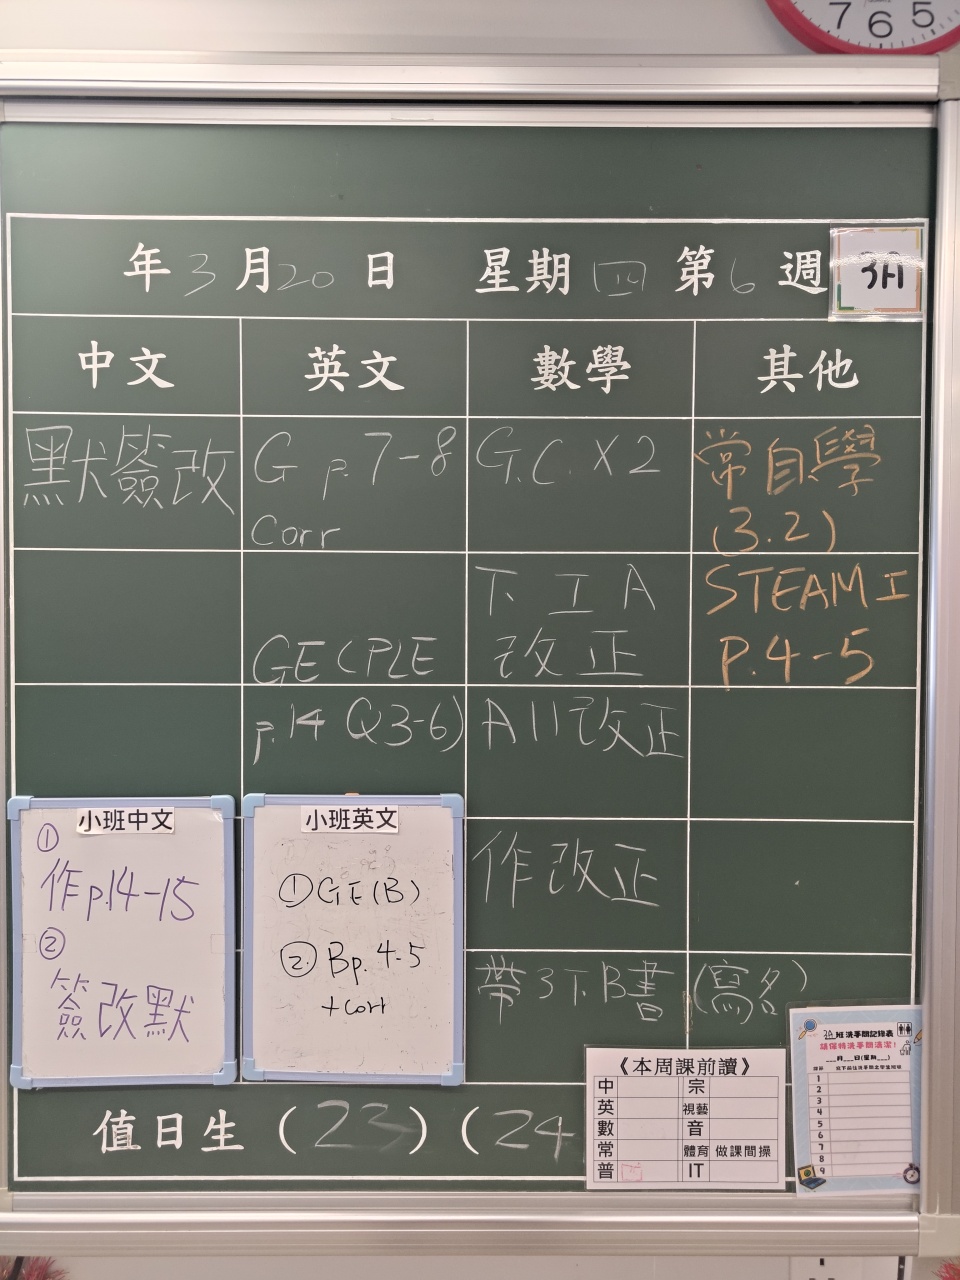 7 6 5
年3月20日 星期四 第6週
3A
中文 英文 數學 其他
默簽改
G p.7-8
Corr
G.C. X2
常自學
(3.2)
GE CPLE
p.14 Q3-6)
下工A
改正
STEAM工
P.4-5
A11改正
作改正
帶3下B書 (寫名)
小班中文
①
作p.14-15
②
簽改默
小班英文
①GE(B)
②Bp.4-5
+corr
值日生(23)(24
《本周課前讀》
中 宗
英 視藝
數 音
常 體育 做課間操
普 IT
3A班洗手間記錄表
請保持洗手間清潔!
___月___日(星期___)
1
2
3
4
5
6
7
8
9